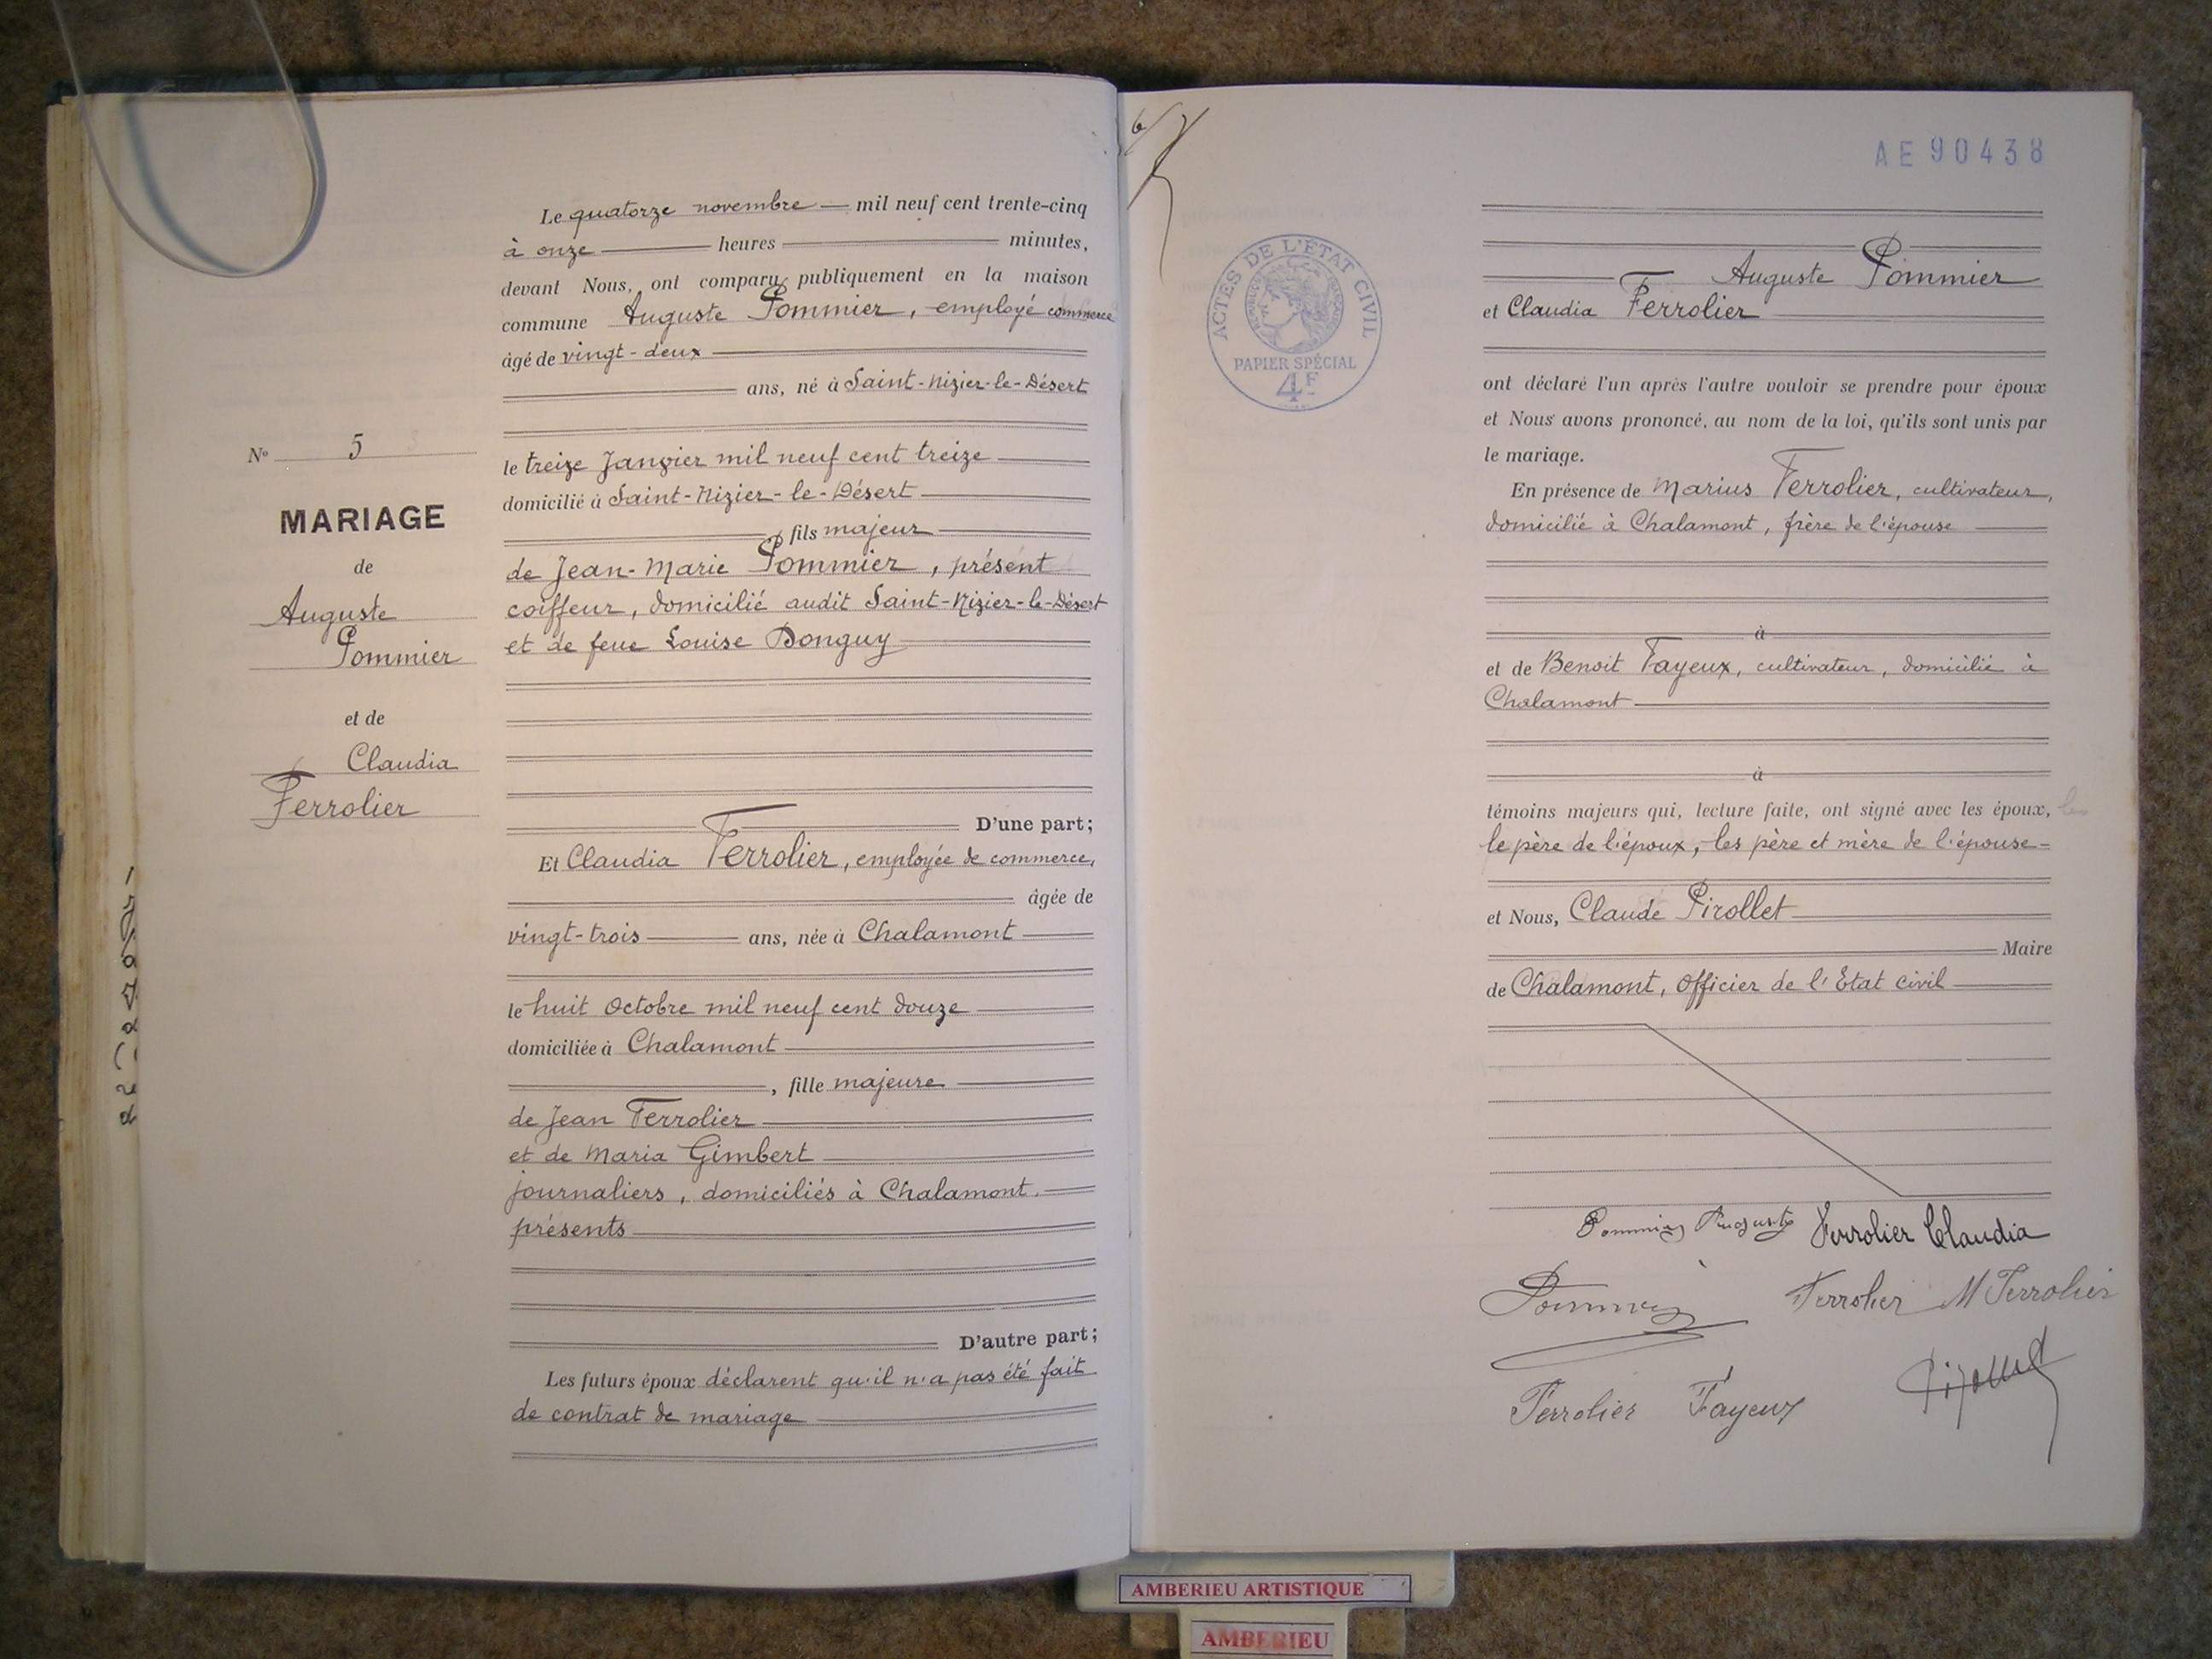 Le quatorze novembre mil neuf cent trente-cinq
à onze heures minutes,
devant Nous, ont comparu publiquement en la maison
commune Auguste Pommier, employé commerce
âgé de vingt-deux
ans, né à Saint-Nizier-le-Désert
le treize Janvier mil neuf cent treize
domicilié à Saint-Nizier-le-Désert
, fils majeur
de Jean-Marie Pommier, présent
coiffeur, domicilié audit Saint-Nizier-le-Désert
et de feue Louise Donguy
D'une part;
Et Claudia Ferrolier, employée de commerce,
âgée de
vingt-trois ans, née à Chalamont
le huit Octobre mil neuf cent douze
domiciliée à Chalamont
, fille majeure
de Jean Ferrolier
et de Maria Gimbert
journaliers, domiciliés à Chalamont.
présents
D'autre part;
Les futurs époux déclarent qu'il n'a pas été fait
de contrat de mariage
No 5
MARIAGE
de
Auguste
Pommier
et de
Claudia
Ferrolier
AE 90438
ACTES DE L'ÉTAT CIVIL
PAPIER SPÉCIAL
4F
Auguste Pommier
et Claudia Ferrolier
ont déclaré l'un après l'autre vouloir se prendre pour époux
et Nous avons prononcé, au nom de la loi, qu'ils sont unis par
le mariage.
En présence de Marius Ferrolier, cultivateur,
domicilié à Chalamont, frère de l'épouse
à
et de Benoit Fayeux, cultivateur, domicilié à
Chalamont
à
témoins majeurs qui, lecture faite, ont signé avec les époux, les
le père de l'époux, les père et mère de l'épouse
et Nous, Claude Pirollet
Maire
de Chalamont, Officier de l'Etat civil
Pommier Auguste Ferrolier Claudia
Pommier Ferrolier M Ferrolier
Ferrolier Fayeux Pirollet
AMBERIEU ARTISTIQUE
AMBERIEU